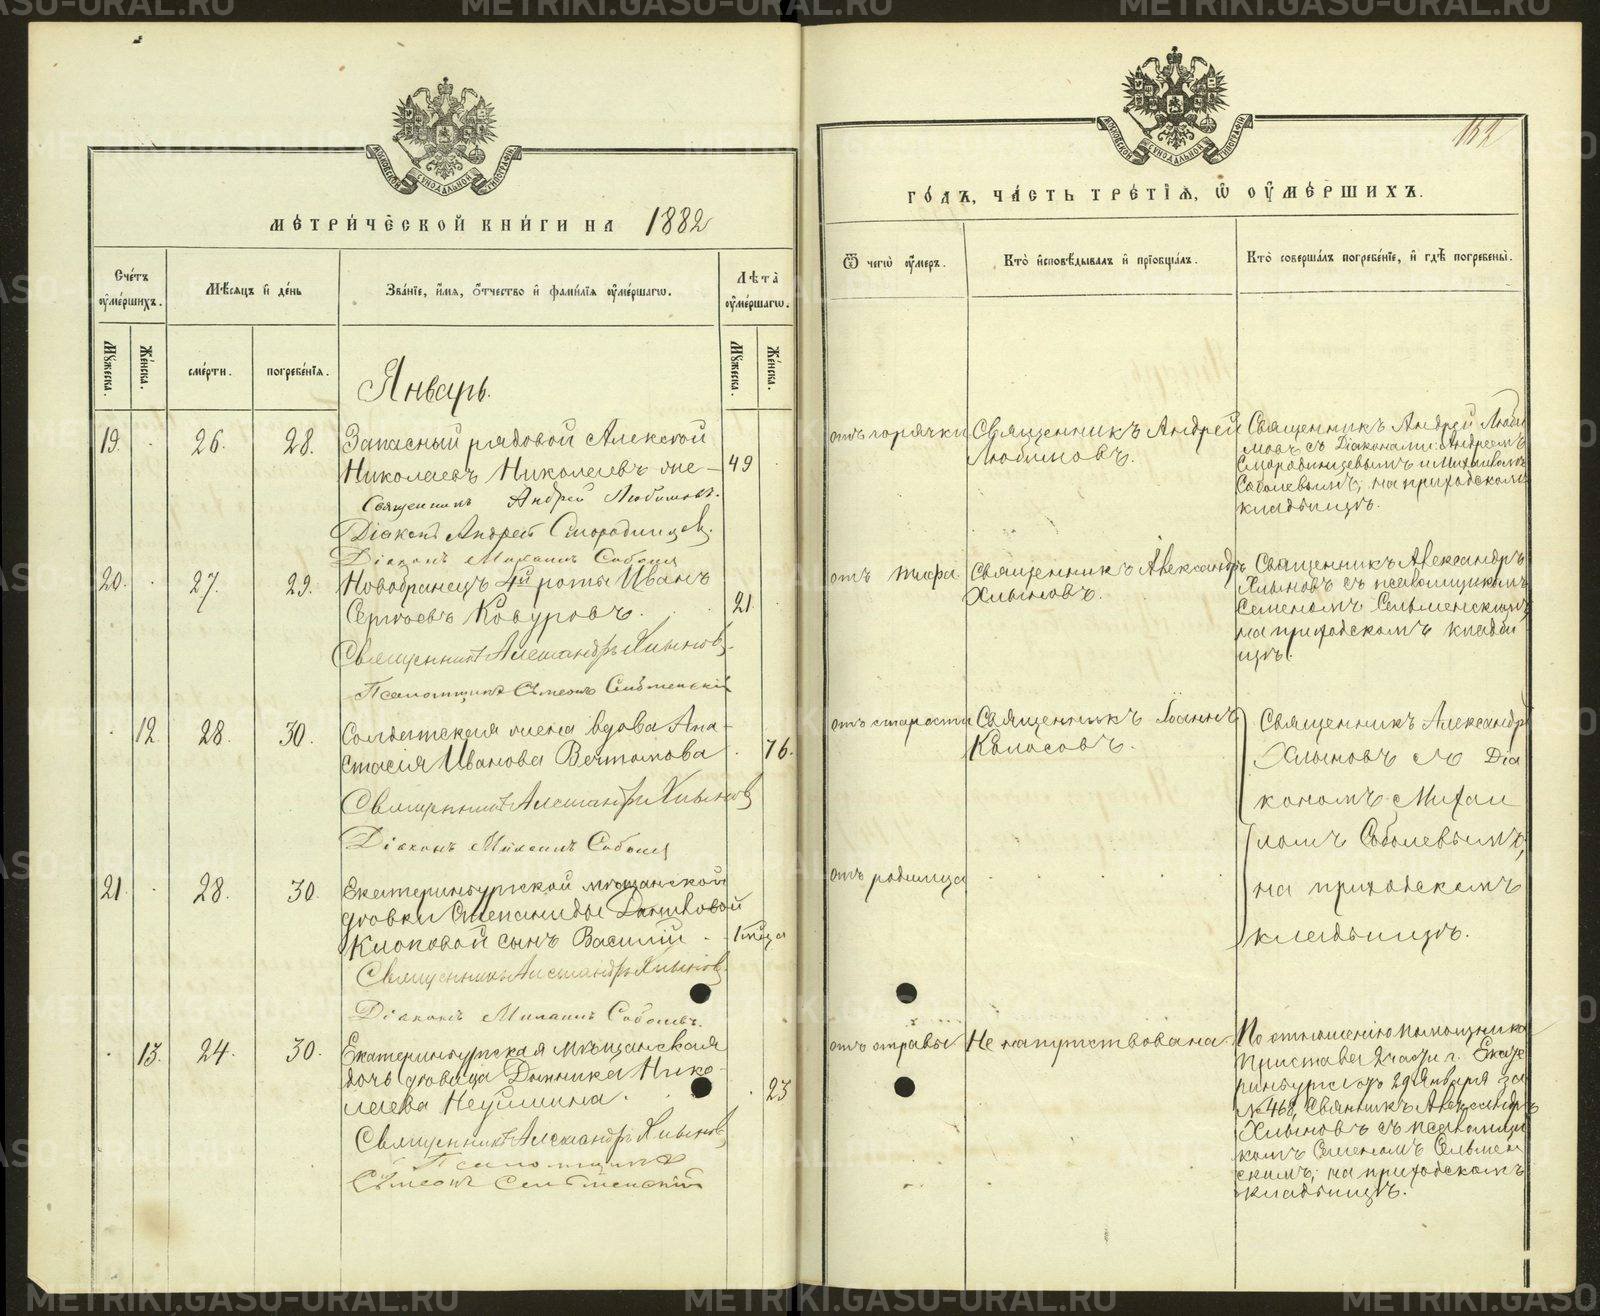 METRIKI.GASU-URAL.RU
МОСКОВСКОЙ СѴНОДАЛЬНОЙ ТИПОГРАФІИ
МЕТРИЧЕСКОЙ КНИГИ НА 1882
Счетъ оумершихъ.
Мѣсяцъ и день
Званіе, имя, отчество и фамилія оумершагѡ.
Лѣта оумершагѡ.
Мужеска.
Женска.
смерти.
погребенія.
Мужеска.
Женска.
Январь.
19. 26. 28. Запасный рядовой Алексѣй
Николаевъ Николаевъ же 49
Священникъ Андрей Любимовъ.
Діаконъ Андрей Смородинцевъ.
Діаконъ Михаилъ Соболевъ
20. 27. 29. Новобранецъ 4й роты Иванъ
Сергѣевъ Ковуровъ. 21.
Священникъ Александръ Хлыновъ.
Псаломщикъ Сѵмеонъ Сельменскій
12. 28. 30. Солдатская жена вдова Ана-
стасія Иванова Вентомова 76.
Священникъ Александръ Хлыновъ
Діаконъ Михаилъ Соболев
21. 28. 30. Екатеринбургской мѣщанской
дѣвки Степаниды
Клюковой сынъ Василій
Священникъ Александръ Хлыновъ
Діаконъ Михаилъ Соболевъ.
13. 24. 30. Екатеринбургская мѣщанская
дочь дѣвица Домника Нико-
лаева Неуймина. 23
Священникъ Александръ Хлыновъ
Псаломщикъ
Сѵмеонъ Сельменскій
МОСКОВСКОЙ СѴНОДАЛЬНОЙ ТИПОГРАФІИ
152
ГОДЪ, ЧАСТЬ ТРЕТІЯ, Ѡ ОУМЕРШИХЪ.
Ѿ чегѡ оумеръ.
Кто исповѣдывалъ и пріобщалъ.
Кто совершалъ погребеніе, и гдѣ погребены.
отъ горячки Священникъ Андрей
Любимовъ.
Священникъ Андрей Люби
мовъ съ Діаконами: Андреемъ
Смородинцевымъ и Михаиломъ
Соболевымъ; на приходскомъ
кладбищѣ.
отъ тифа. Священникъ Александръ
Хлыновъ.
Священникъ Александръ
Хлыновъ съ псаломщикомъ
Семеномъ Сельменскимъ,
на приходскомъ кладби
щѣ.
отъ старости Священникъ Іоаннъ
Колосовъ.
Священникъ Александръ
Хлыновъ съ Діа
кономъ Михаи
ломъ Соболевымъ,
на приходскомъ
кладбищѣ.
отъ родимца
отъ отравы Не напутствована.
По отношенію помощника
Пристава 2 части г. Екате
ринбурга отъ 29 Января за
№ 468, Священникъ Александръ
Хлыновъ съ псаломщи
комъ Семеномъ Сельмен
скимъ; на приходскомъ
кладбищѣ.